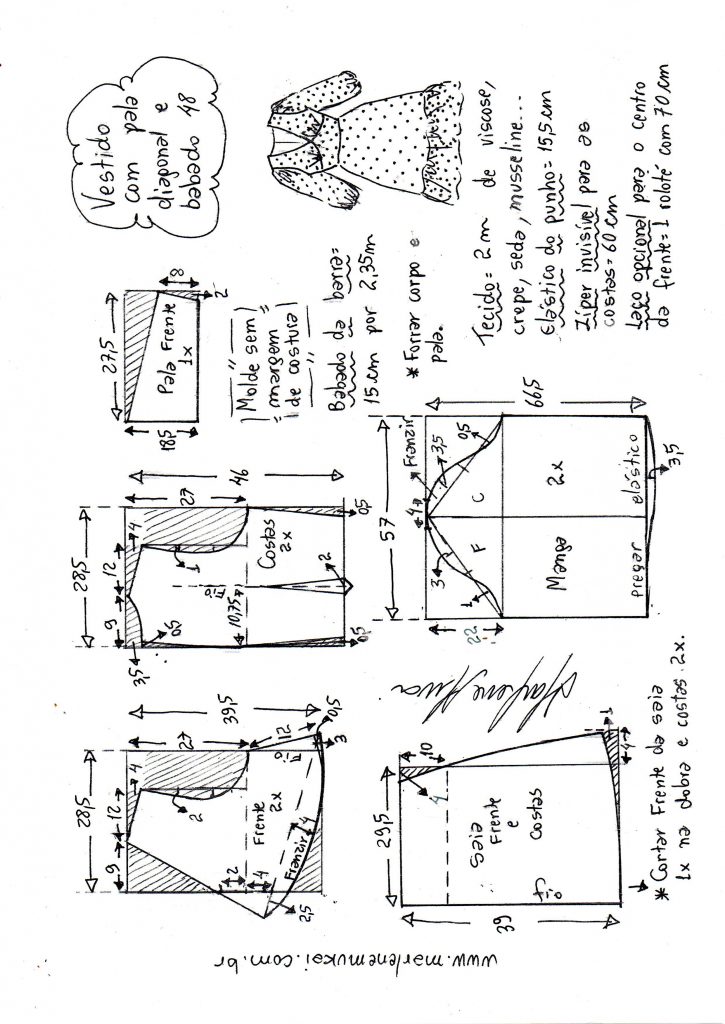 Vestido
com pala
diagonal e
babado 48
28,5
9
12
4
27
39,5
2
Frente
2x
Fio
12
0,5
3
2
4
Franzir
4
2,5
28,5
9
12
4
27
46
3,5
0,5
1
Fio
10,75
Costas
2x
2
0,5
0,5
27,5
18,5
Pala Frente
1x
8
2
Molde sem
margem
de costura
Babado da barra=
15 cm por 2,35m
* Forrar corpo e
pala.
Tecido= 2 m de viscose,
crepe, seda, musseline...
Elástico do punho= 15,5 cm
Zíper invisível para as
costas= 60 cm
Laço opcional para o centro
da frente= 1 rolotê com 70 cm
29,5
39
10
4
Saia
Frente
e
Costas
Fio
1
4
* Cortar Frente da saia
1x na dobra e costas 2x.
57
22
66,5
Franzir
4
3
3,5
1
0,5
F
C
Manga
2x
pregar elástico
3,5
www.marlenemukai.com.br